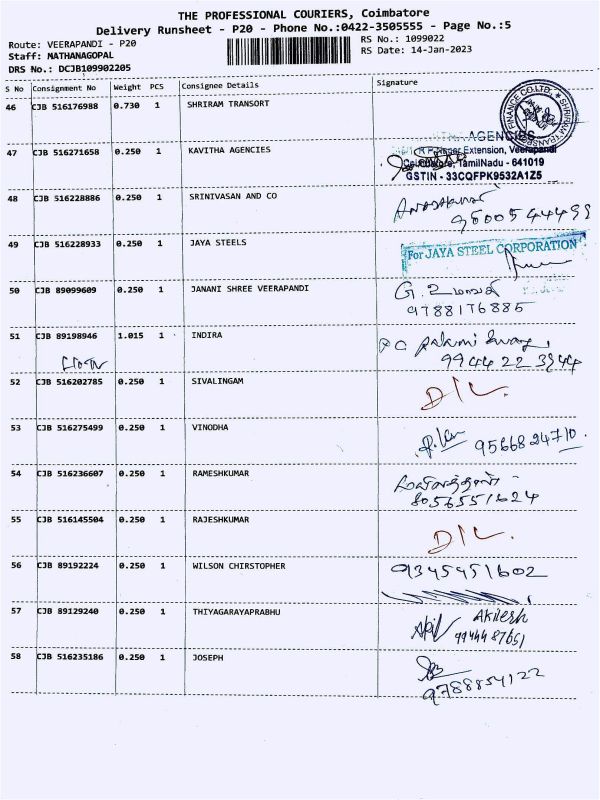 THE PROFESSIONAL COURIERS, Coimbatore
Delivery Runsheet - P20 - Phone No.:0422-3505555 - Page No.:5
Route: VEERAPANDI - P20
RS No.: 1099022
Staff: MATHANAGOPAL
RS Date: 14-Jan-2023
DRS No.: DCJB109902205
S No Consignment No Weight PCS Consignee Details Signature
46 CJB 516176988 0.730 1 SHRIRAM TRANSORT
AGENCIES
47 CJB 516271658 0.250 1 KAVITHA AGENCIES Extension, Veerapandi
Coimbatore, TamilNadu - 641019
GSTIN - 33CQFPK9532A1Z5
48 CJB 516228886 0.250 1 SRINIVASAN AND CO
49 CJB 516228933 0.250 1 JAYA STEELS For JAYA STEEL CORPORATION
50 CJB 89099609 0.250 1 JANANI SHREE VEERAPANDI
9788176885
51 CJB 89198946 1.015 1 INDIRA
9944 22 3944
52 CJB 516202785 0.250 1 SIVALINGAM D/L.
53 CJB 516275499 0.250 1 VINODHA 9566824710
54 CJB 516236607 0.250 1 RAMESHKUMAR
8056551624
55 CJB 516145504 0.250 1 RAJESHKUMAR D/L.
56 CJB 89192224 0.250 1 WILSON CHIRSTOPHER 9345451602
57 CJB 89129240 0.250 1 THIYAGARAYAPRABHU Akilesh
99444 87651
58 CJB 516235186 0.250 1 JOSEPH
9788854122